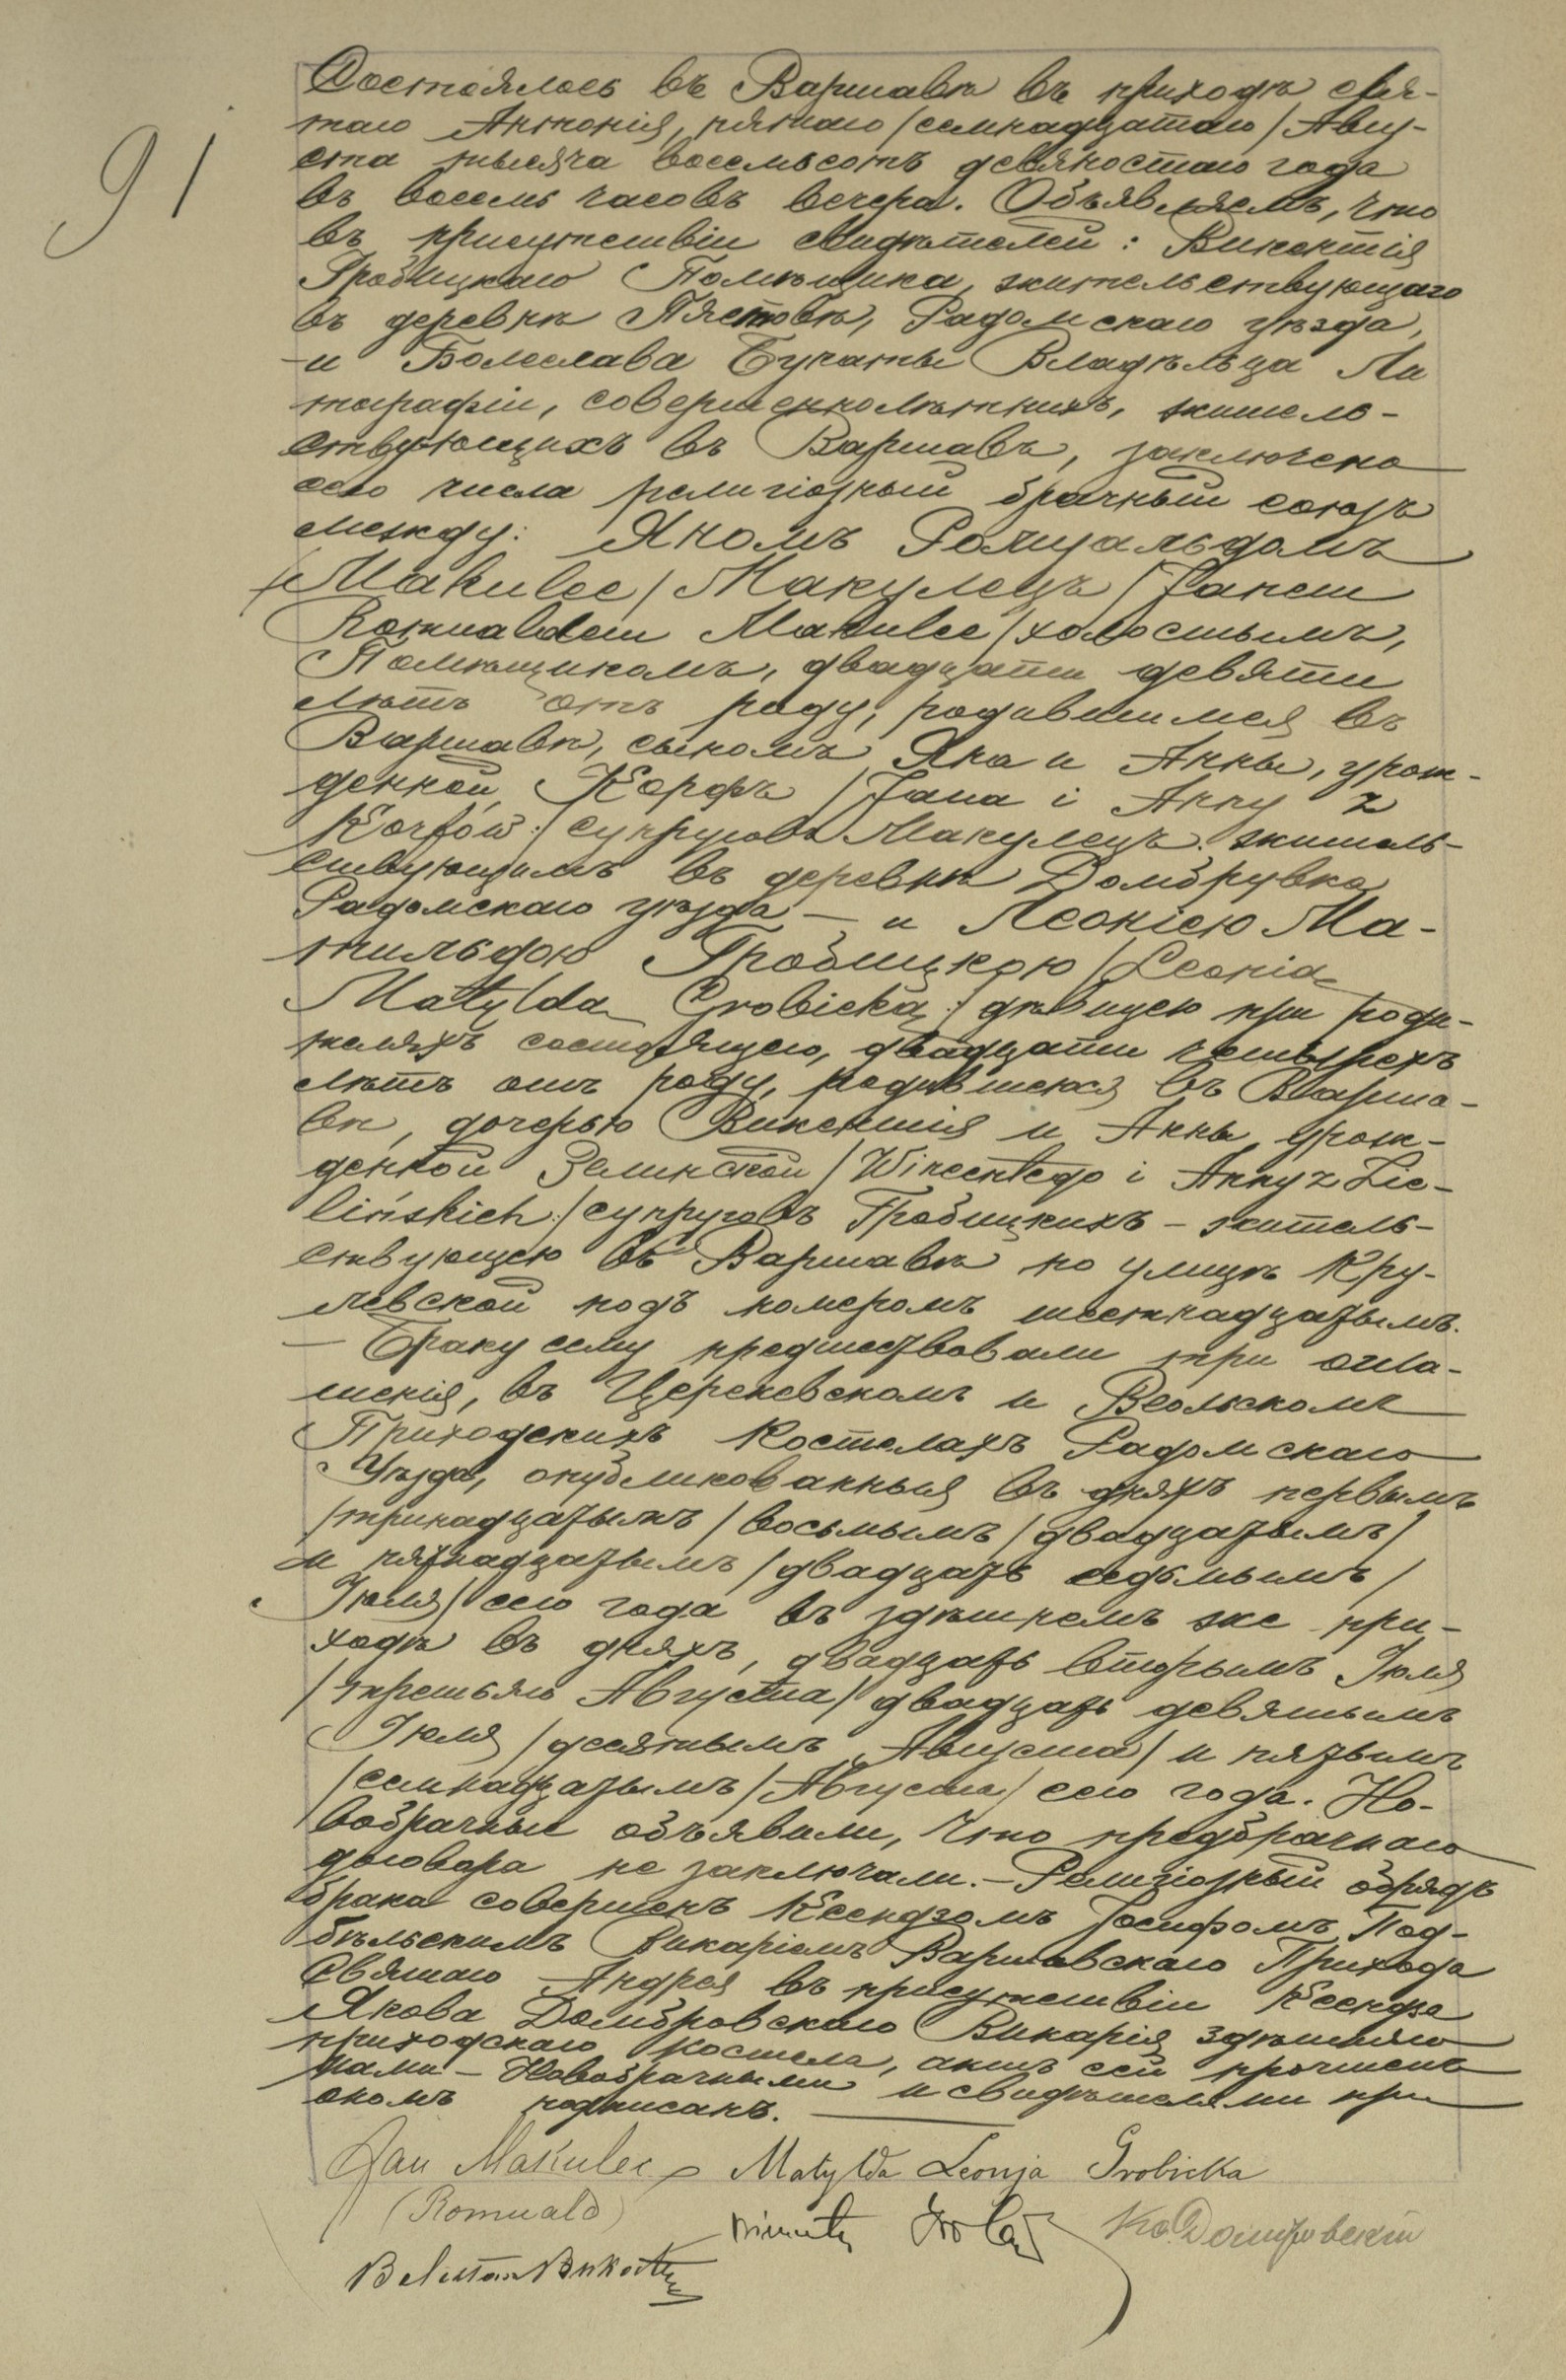 91
Состоялось въ Варшавѣ въ приходѣ свя-
таго Антонія, пятаго /семнадцатаго/ Авгу-
ста тысяча восемьсотъ девяностаго года
въ восемь часовъ вечера. Объявляемъ, что
въ присутствіи свидѣтелей: Викентія
Гробицкаго Помѣщика, жительствующаго
въ деревнѣ Пястовѣ, Радомскаго уѣзда,
и Болеслава Букаты Владѣльца Ли
тографіи, совершеннолѣтнихъ, житель-
ствующихъ въ Варшавѣ, заключенъ
сего числа религіозный брачный союзъ
между: Яномъ Ромуальдомъ
Makulec / Макулецъ / Janem
Romualdem Makulec / холостымъ,
Помѣщикомъ, двадцати девяти
лѣтъ отъ роду, родившимся въ
Варшавѣ, сыномъ Яна и Анны, урож-
денной Корфъ / Jana i Anny z
Korfów :/ супруговъ Макулецъ. житель-
ствующимъ въ деревнѣ Домбрувка
Радомскаго уѣзда — и Леонією Ма-
тильдою Гробицкою / Leonia
Matylda Grobicka :/ дѣвицею при роди-
теляхъ состоящею, двадцати четырехъ
лѣтъ отъ роду, родившеюся въ Варша-
вѣ, дочерью Викентія и Анны урож-
денной Зелинской / Wincentego i Anny z Zie-
lińskich :/ супруговъ Гробицкихъ - житель-
ствующею въ Варшавѣ по улицѣ Кру-
левской подъ номеромъ шестнадцатымъ.
— Браку сему предшествовали три огла-
шенія, въ Церекевскомъ и Веольскомъ
Приходскихъ Костелахъ Радомскаго
Уѣзда, опубликованныя въ дняхъ первымъ
/тринадцатымъ/ восьмымъ /двадцатымъ/
и пятнадцатымъ /двадцать седьмымъ/
Іюля/ сего года въ здѣшнемъ же при-
ходѣ въ дняхъ, двадцать вторымъ Іюля
/третьямъ Августа/ двадцать девятымъ
Іюля /десятымъ Августа/ и пятымъ
/семнадцатымъ/ Августа/ сего года. Но-
вобрачные объявили, что предбрачнаго
договора не заключали. - Религіозный обрядъ
брака совершенъ Ксендзомъ Іосифомъ Под-
бѣльскимъ Викаріемъ Варшавскаго Прихода
Святаго Андрея въ присутствіи Ксендза
Якова Домбровскаго Викарія здѣшняго
приходскаго костела, актъ сей прочтенъ
нами - Новобрачными и свидѣтелями при
ономъ подписанъ.
Jan Makulec Matylda Leonja Grobicka
(Romuald)
Кс. Домбровскій